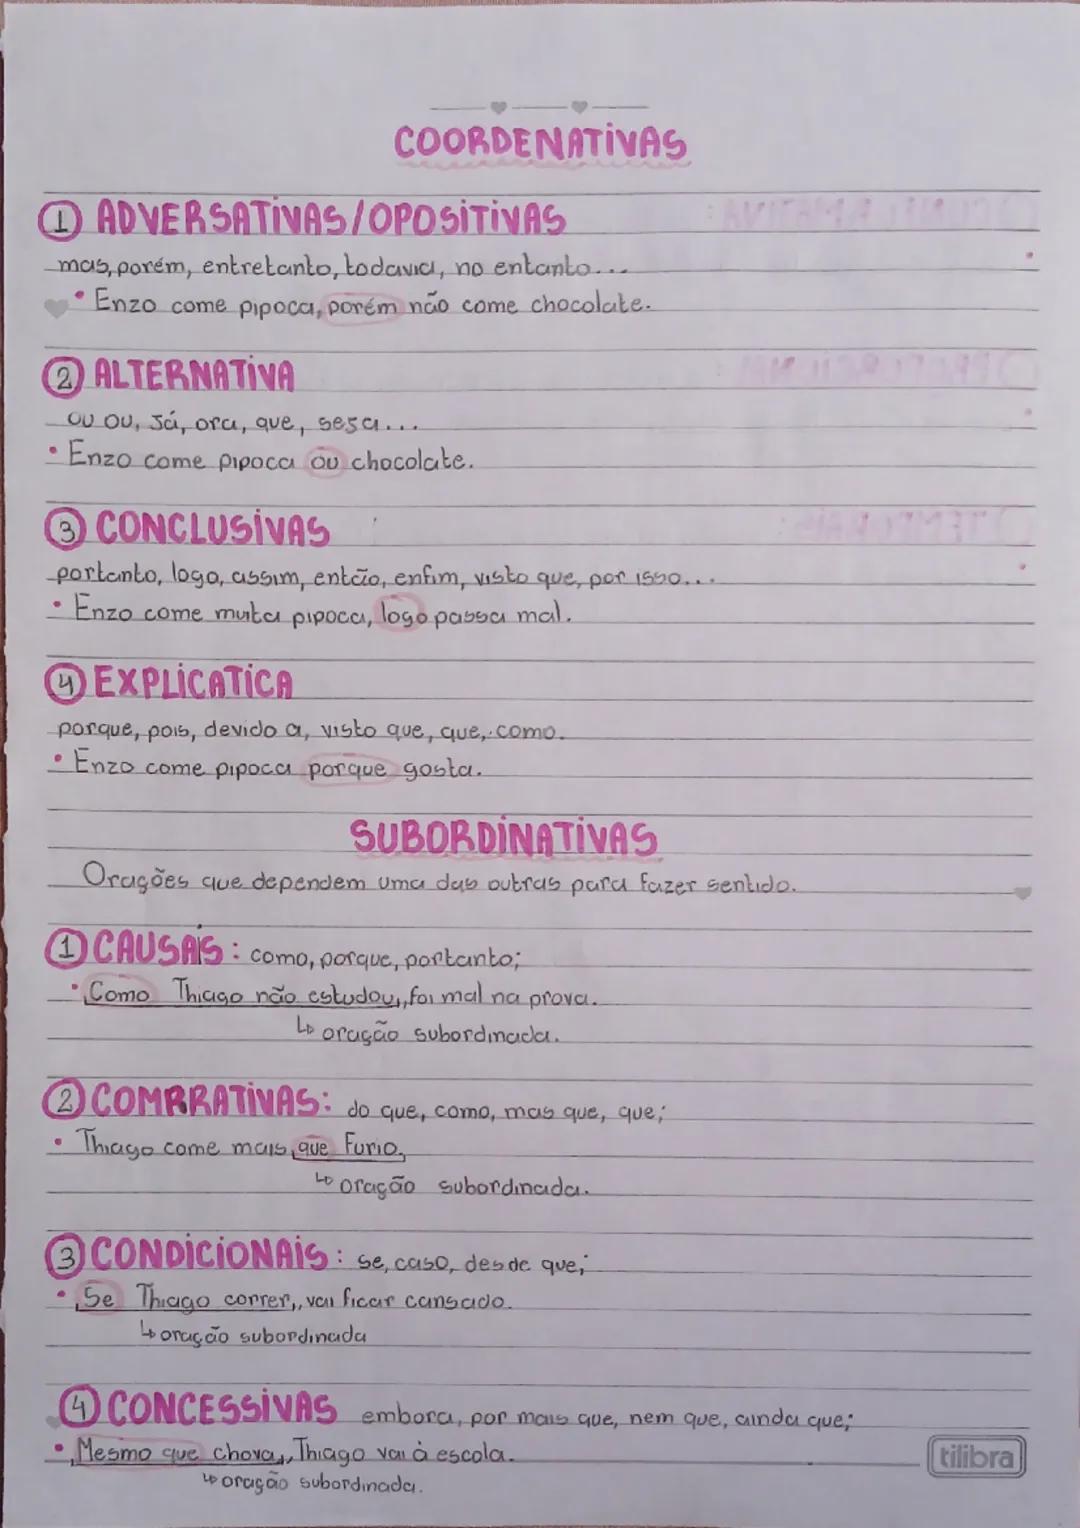 COORDENATIVAS
1 ADVERSATIVAS/OPOSITIVAS
mas, porém, entretanto, todavia, no entanto...
• Enzo come pipoca, porém não come chocolate.
2 ALTERNATIVA
ou ou, já, ora, que, seja...
• Enzo come pipoca ou chocolate.
3 CONCLUSIVAS
portanto, logo, assim, então, enfim, visto que, por isso...
• Enzo come muita pipoca, logo passa mal.
4 EXPLICATICA
porque, pois, devido a, visto que, que, como.
• Enzo come pipoca porque gosta.
SUBORDINATIVAS
Orações que dependem uma das outras para fazer sentido.
1 CAUSAIS: como, porque, portanto;
• Como Thiago não estudou, foi mal na prova.
↳ oração subordinada.
2 COMPARATIVAS: do que, como, mas que, que;
• Thiago come mais que Furio.
↳ oração subordinada.
3 CONDICIONAIS: se, caso, desde que;
• Se Thiago correr, vai ficar cansado.
↳ oração subordinada
4 CONCESSIVAS embora, por mais que, nem que, ainda que;
• Mesmo que chova, Thiago vai à escola.
tilibra
↳ oração subordinada.